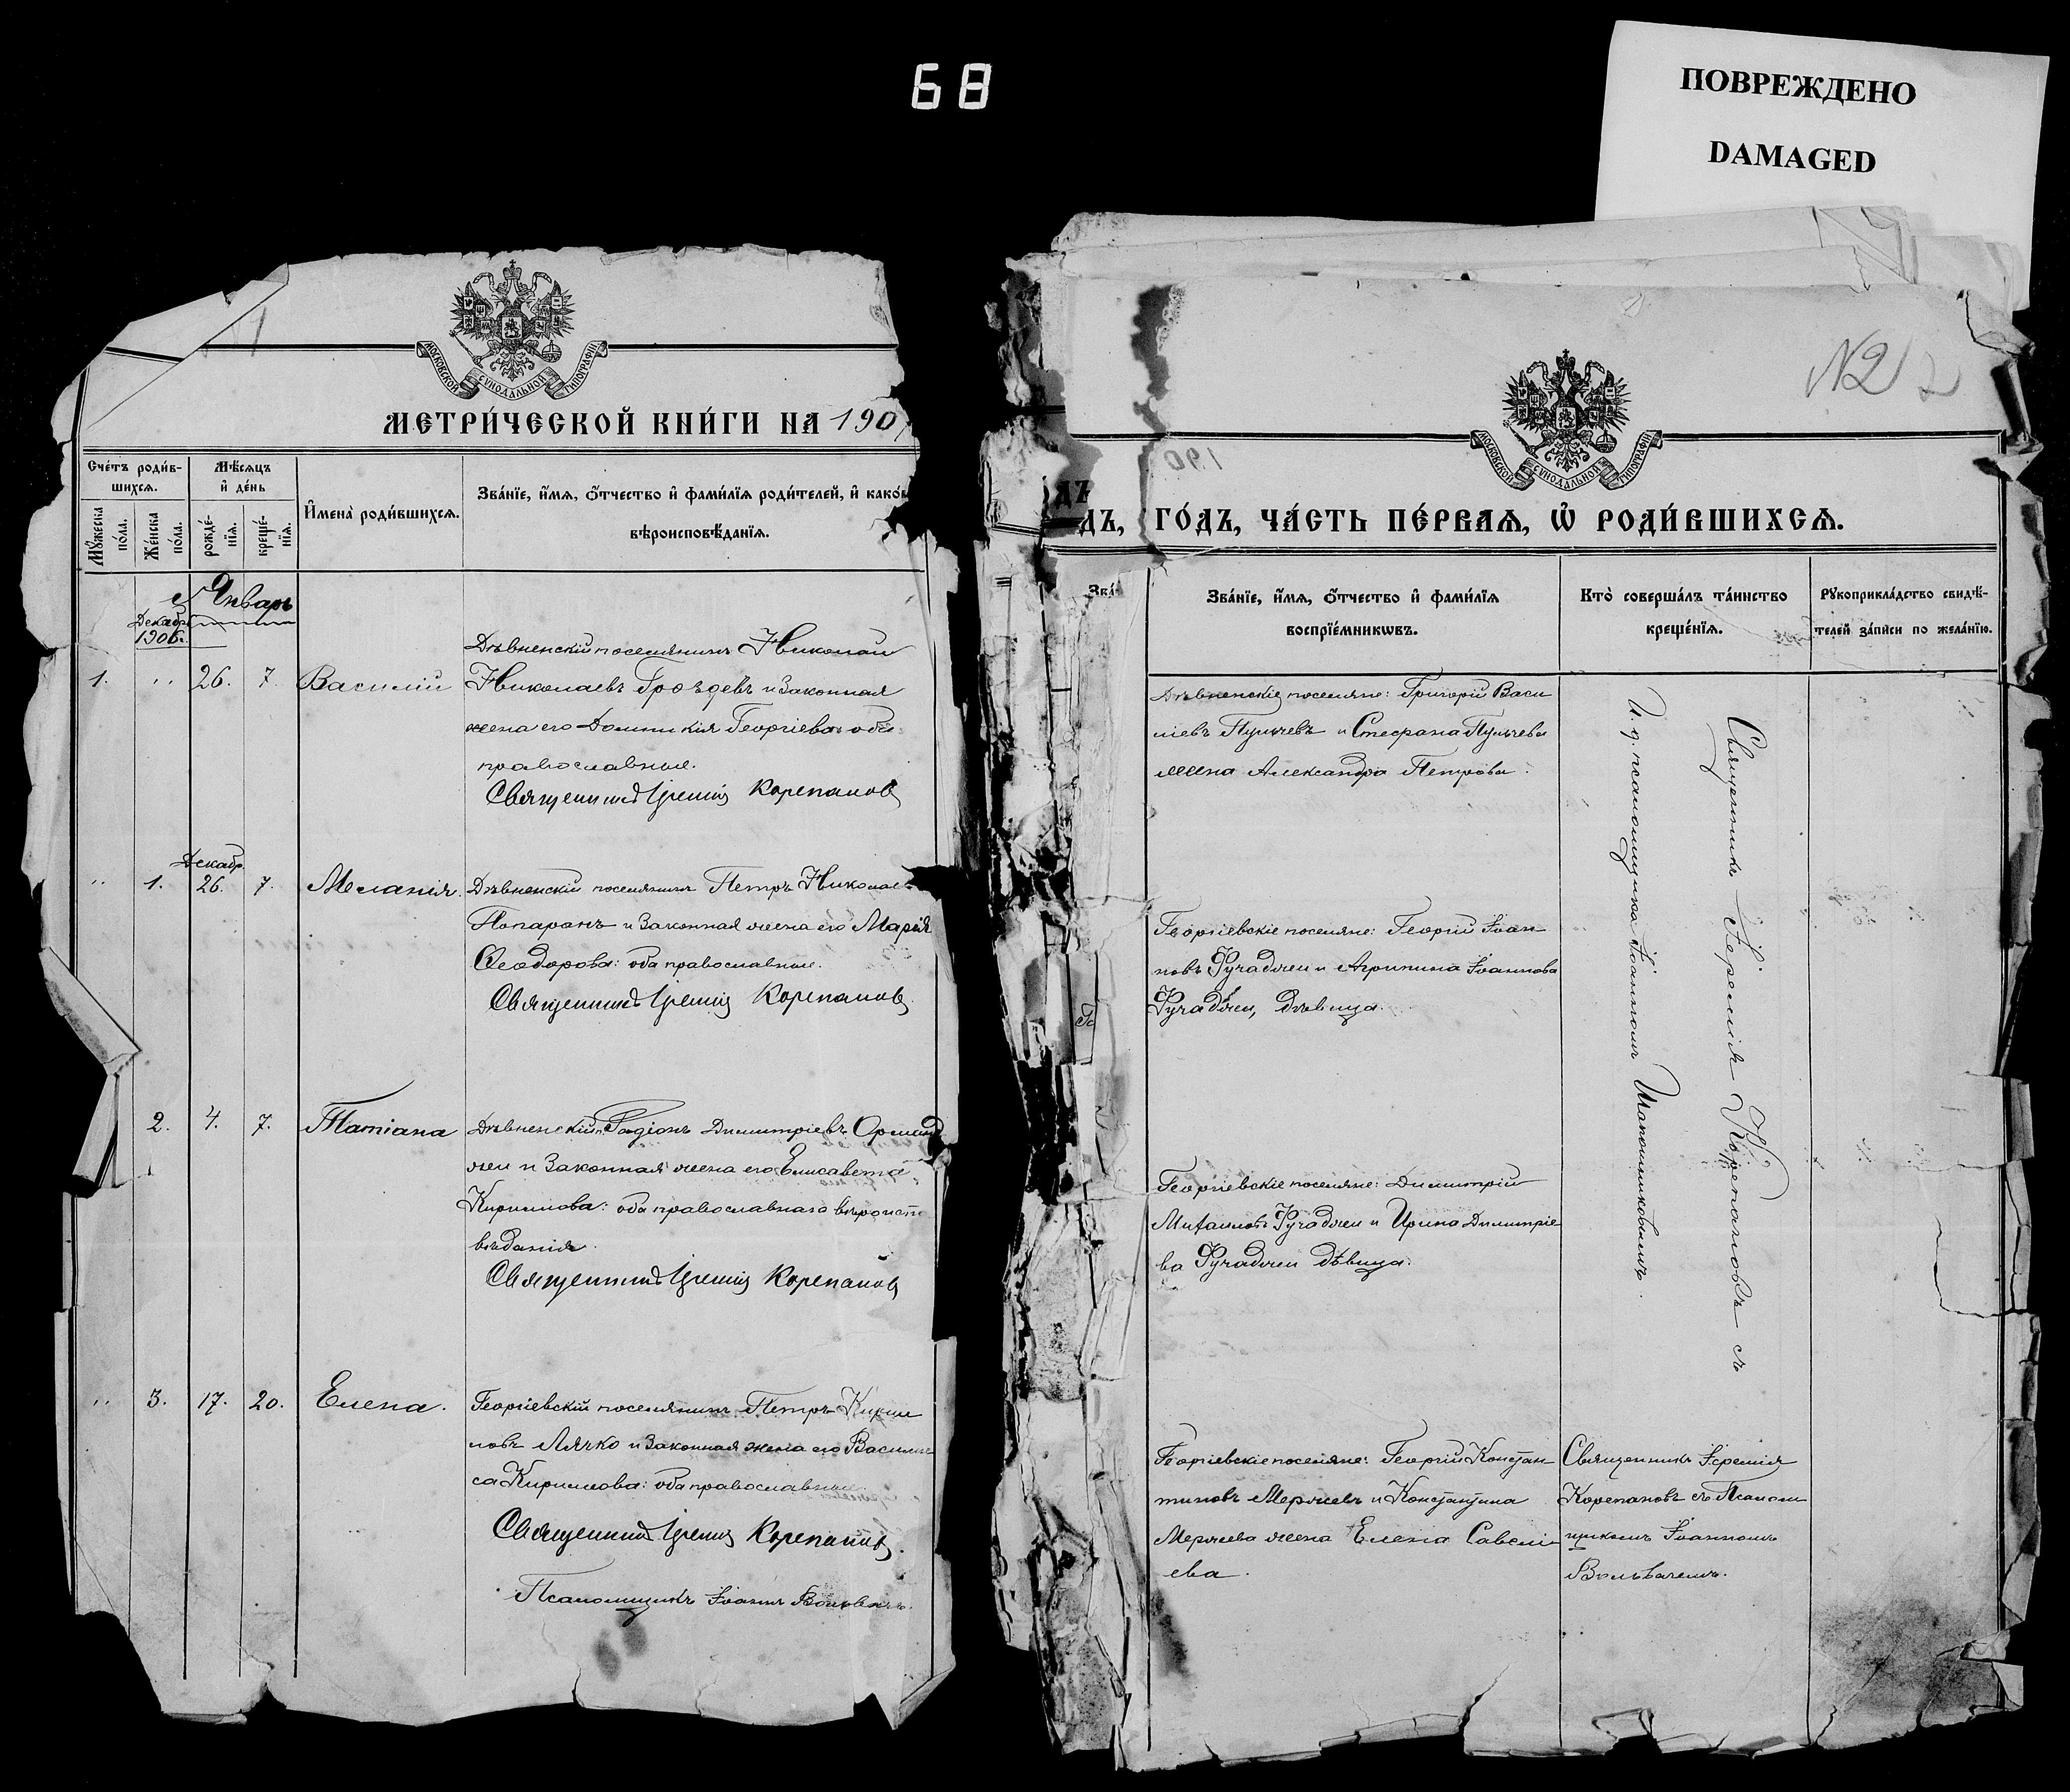 68
ПОВРЕЖДЕНО
DAMAGED
МОСКОВСКОЙ СУНОДАЛЬНОЙ ТИПОГРАФІИ
МЕТРИ́ЧЕСКОЙ КНИ́ГИ НА 190
Сче́тъ роди́в-
шихсѧ.
Мѣ́сѧцъ
и҆ де́нь
Мꙋ́жеска
по́ла.
Же́нска
по́ла.
рожде́-
нїѧ.
креще́-
нїѧ.
И҆мена̀ роди́вшихсѧ.
Зва́нїе, и҆́мѧ, ѻ҆́тчество и҆ фами́лїѧ роди́телей, и҆ како́в
вѣроисповѣ́данїѧ.
Январь
Декабр.
1906.
1. " 26. 7. Василій
Дѣвненскій поселянинъ Николай
Николаевъ Гроздевъ и законная
жена его Домникія Георгіева: оба
православные.
Священникъ Іеремія Корепановъ
Декабр.
" 1. 26. 7. Меланія.
Дѣвненскій поселянинъ Петръ Николаев
Попаранъ и законная жена его Марія
Ѳеодорова: оба православные.
Священникъ Іеремія Корепановъ.
2. 4. 7. Татіана
Дѣвненскій п. Родіонъ Димитріевъ
жи и законная жена его Елисавета
Кириллова: оба православнаго вѣроиспо
вѣданія.
Священникъ Іеремія Корепановъ
" 3. 17. 20. Елена.
Георгіевскій поселянинъ Петръ Кирил
ловъ Лячко и законная жена его Васили
са Кириллова: оба православные.
Священникъ Іеремія Корепановъ.
Псаломщикъ Іоаннъ
N2 2
190
МОСКОВСКОЙ СУНОДАЛЬНОЙ ТИПОГРАФІИ
ДЪ
ДЪ, ГО́ДЪ, ЧА́СТЬ ПЕ́РВАѦ, Ѽ РОДИ́ВШИХСѦ.
Зва́
Зва́нїе, и҆́мѧ, ѻ҆́тчество и҆ фами́лїѧ
воспрїе́мникѡвъ.
Кто̀ соверша́лъ та́инство
креще́нїѧ.
Рꙋкоприкла́дство свидѣ́-
телей за́писи по жела́нїю.
Дѣвненскіе поселяне: Григорій Васи
ліевъ Пульчевъ и Стефана Пульчева
жена Александра Петрова.
Георгіевскіе поселяне: Георгій Іоан
новъ Фучаджи и Агрипина Іоаннова
Фучаджи, дѣвица.
Георгіевскіе поселяне: Димитрій
Михаиловъ Фучаджи и Ирина Димитріе
ва Фучаджи дѣвица.
Георгіевскіе поселяне: Георгій Констан
тиновъ Мержевъ и Константина
Мержева жена Елена Савелі
ева.
Священникъ Іеремія Корепановъ съ
И. д. псаломщика Іоанномъ Шапошниковымъ.
Священникъ Іеремія
Корепановъ съ Псалом
щикомъ Іоанномъ